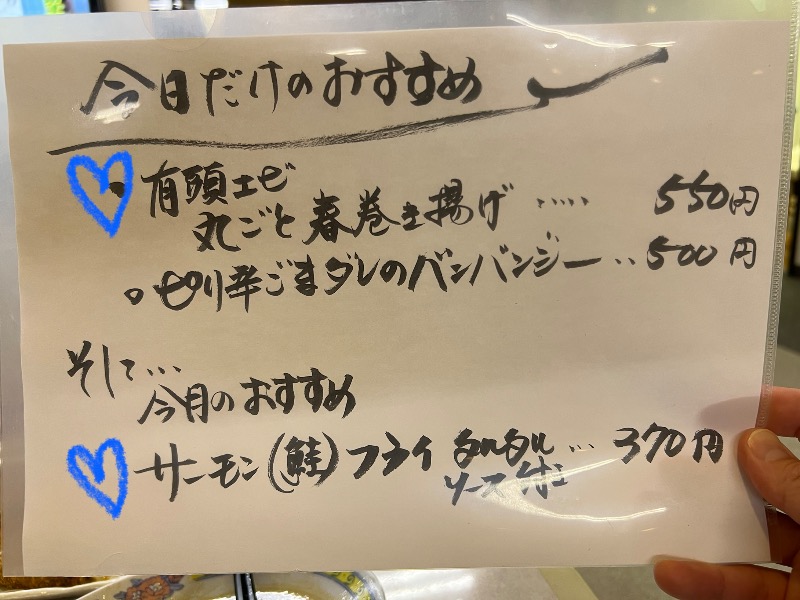 今日だけのおすすめ
有頭エビ
丸ごと春巻き揚げ ..... 550円
ピリ辛ごまダレのバンバンジー .. 500円
そして...
今月のおすすめ
サーモン(鮭)フライ タルタル ... 370円
ソース付